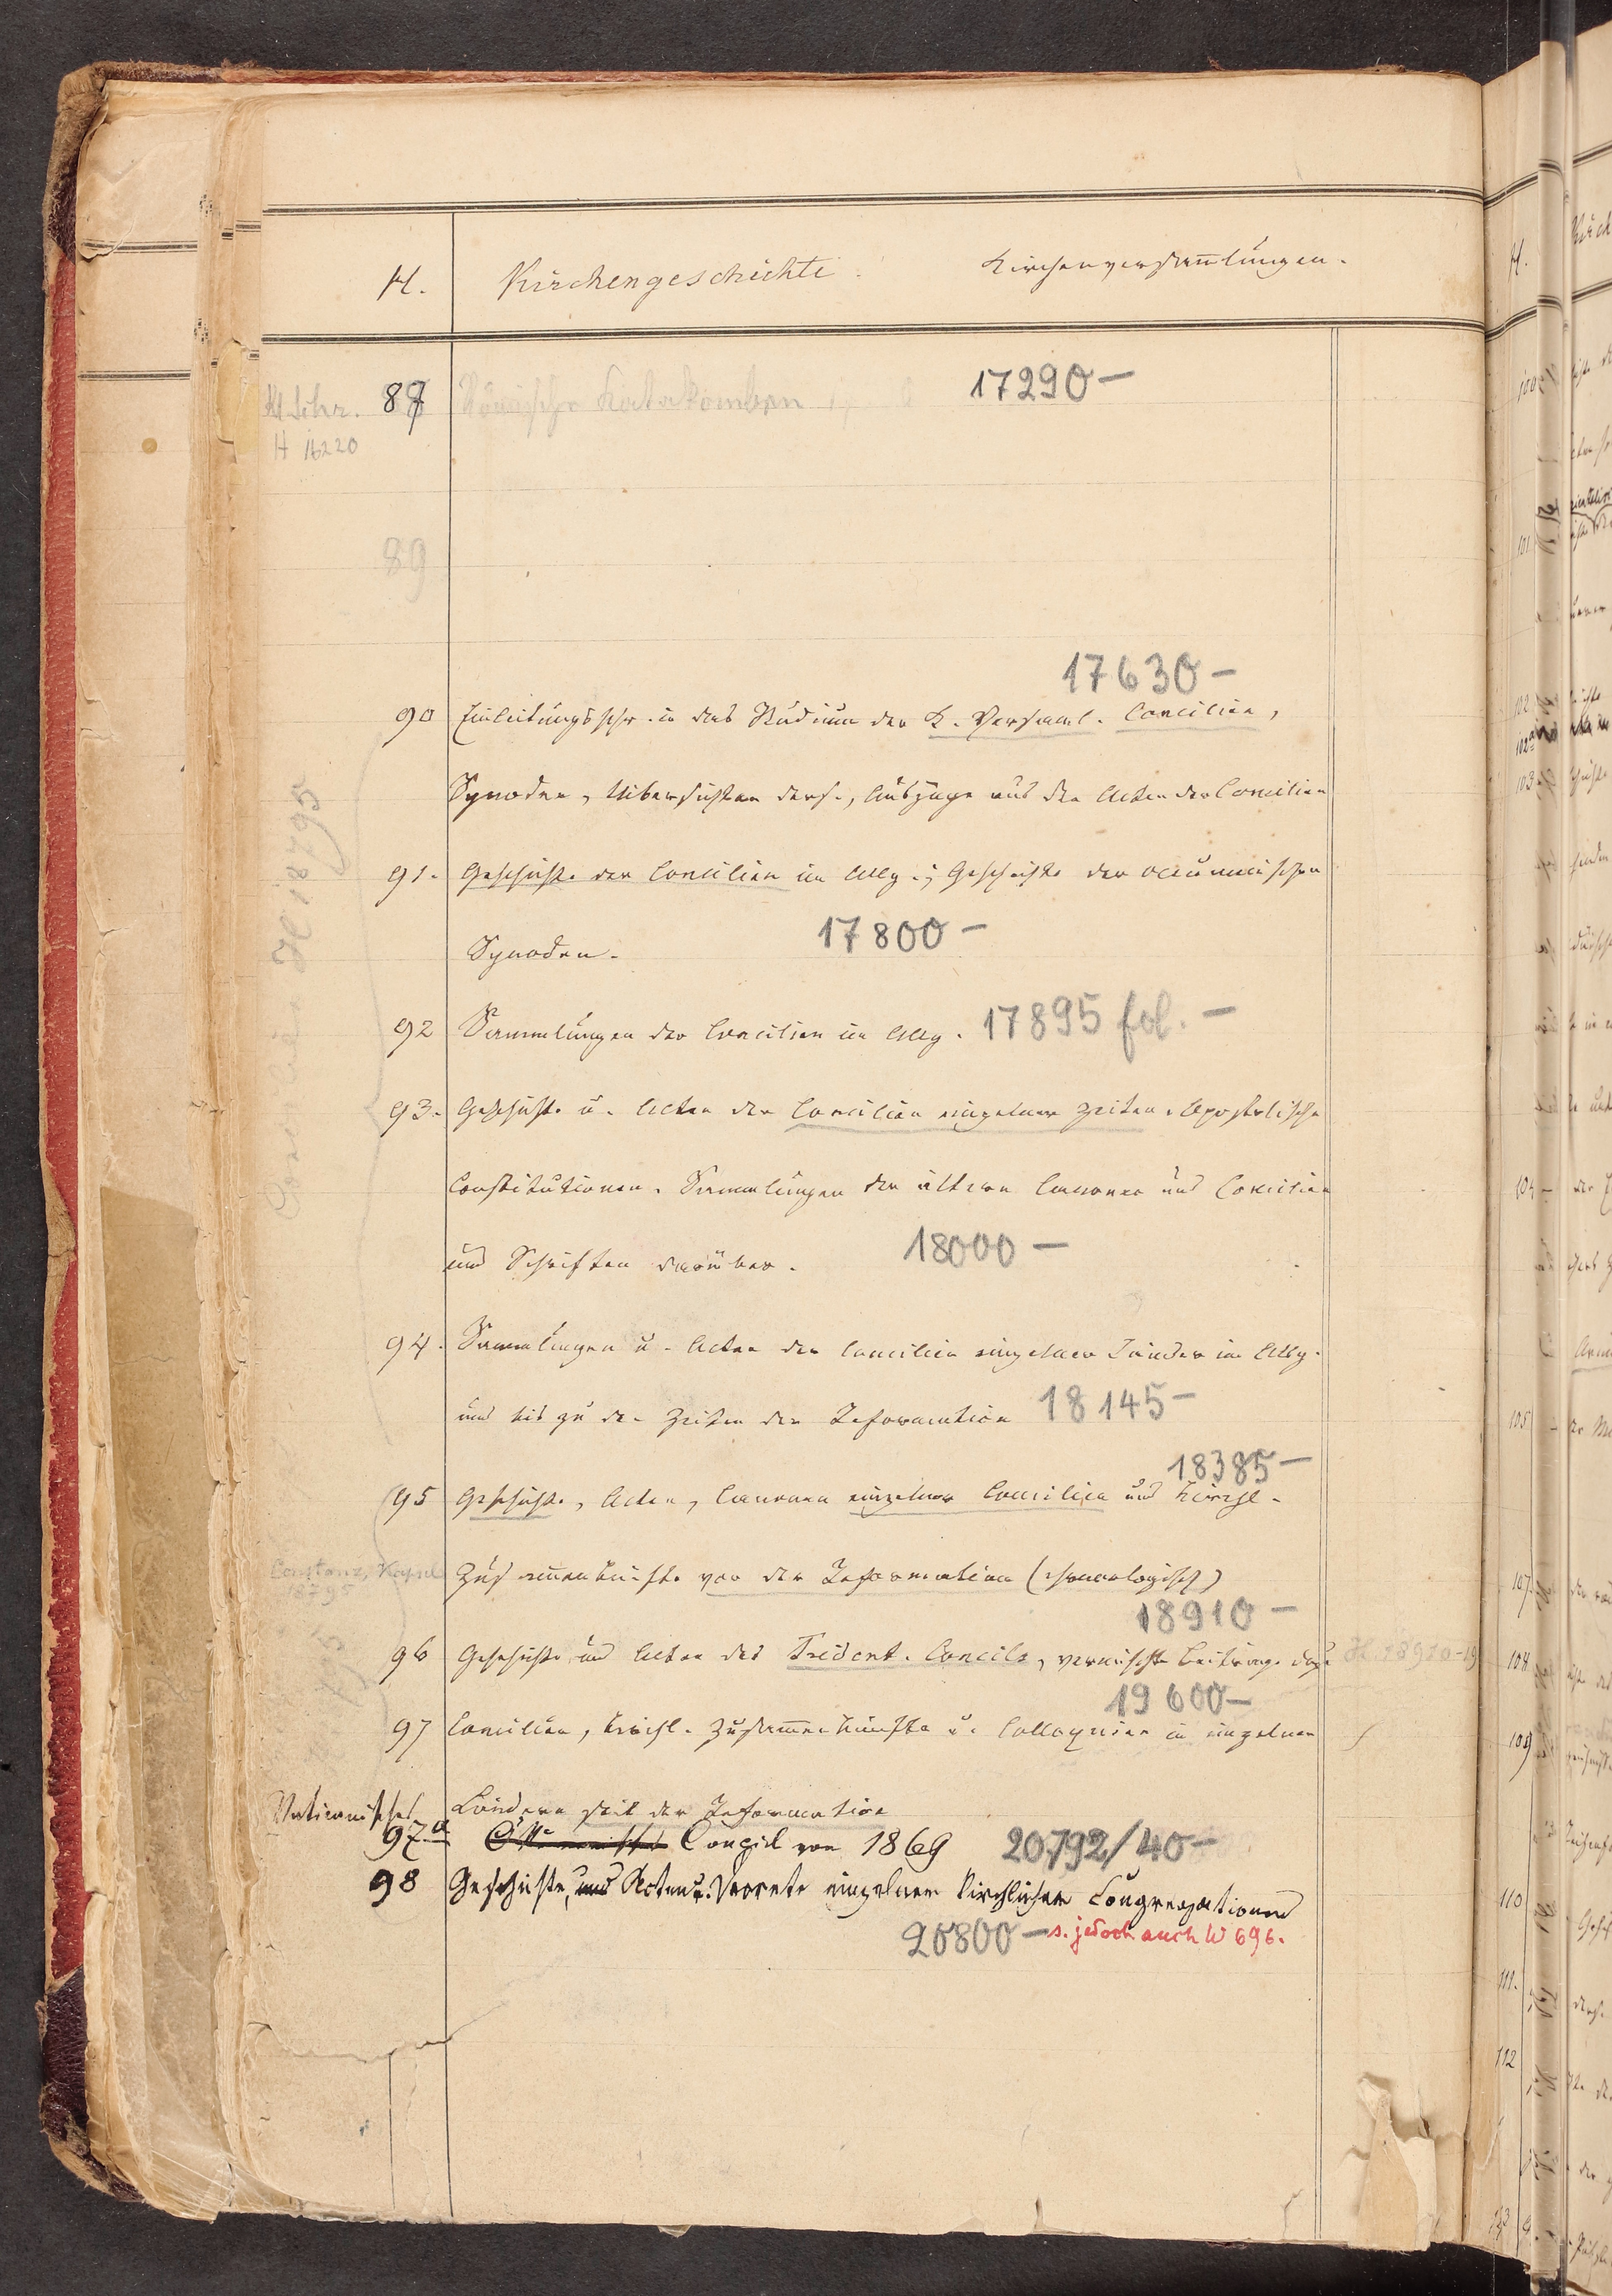 H. Kirchengeschichte Kirchenversam̅lungen.
H Schr. 87 Römische Katakomben 17290 —
H 16220
89
17630 —
90 Einleitungsschr. in das Studium der K. Versaml. Concilien,
Synoden, Uibersichten ders., Auszüge aus den Acten der Concilien
91. Geschichte der Concilien im Allg.; Geschichte der oecumenischen
Synoden. 17800 —
92 Sammlungen der Concilien im Allg. 17895 fol. —
93. Geschichte u. Acten der Concilien einzelner Zeiten. Apostolische
Constitutionen. Sammlungen der ältern Canones und Concilien
und Schriften darüber. 18000 —
94. Sammlungen u. Acten der Concilien einzelner Länder im Allg.
und bis zu den Zeiten der Reformation 18145 —
18385 —
95 Geschichte, Acten, Canonen einzelner Concilien und kirchl.
Constanz, Kapsel Zusam̅enkünfte vor der Reformation (chronologisch)
18795
18910 —
96 Geschichte und Acten des Trident. Concils, vermischte Beiträge dazu H. 18910-19
19600 —
97 Concilien, kirchl. Zusam̅enkünfte u. Colloquien in einzelnen
Ländern seit der Reformation
Vaticanisches
97a Concil von 1869 20792/40 —
98 Geschichte, und Acten u. Decrete einzelner kirchlicher Congregationen
20800 — s. jedoch auch W 696.
Concilien H 18795